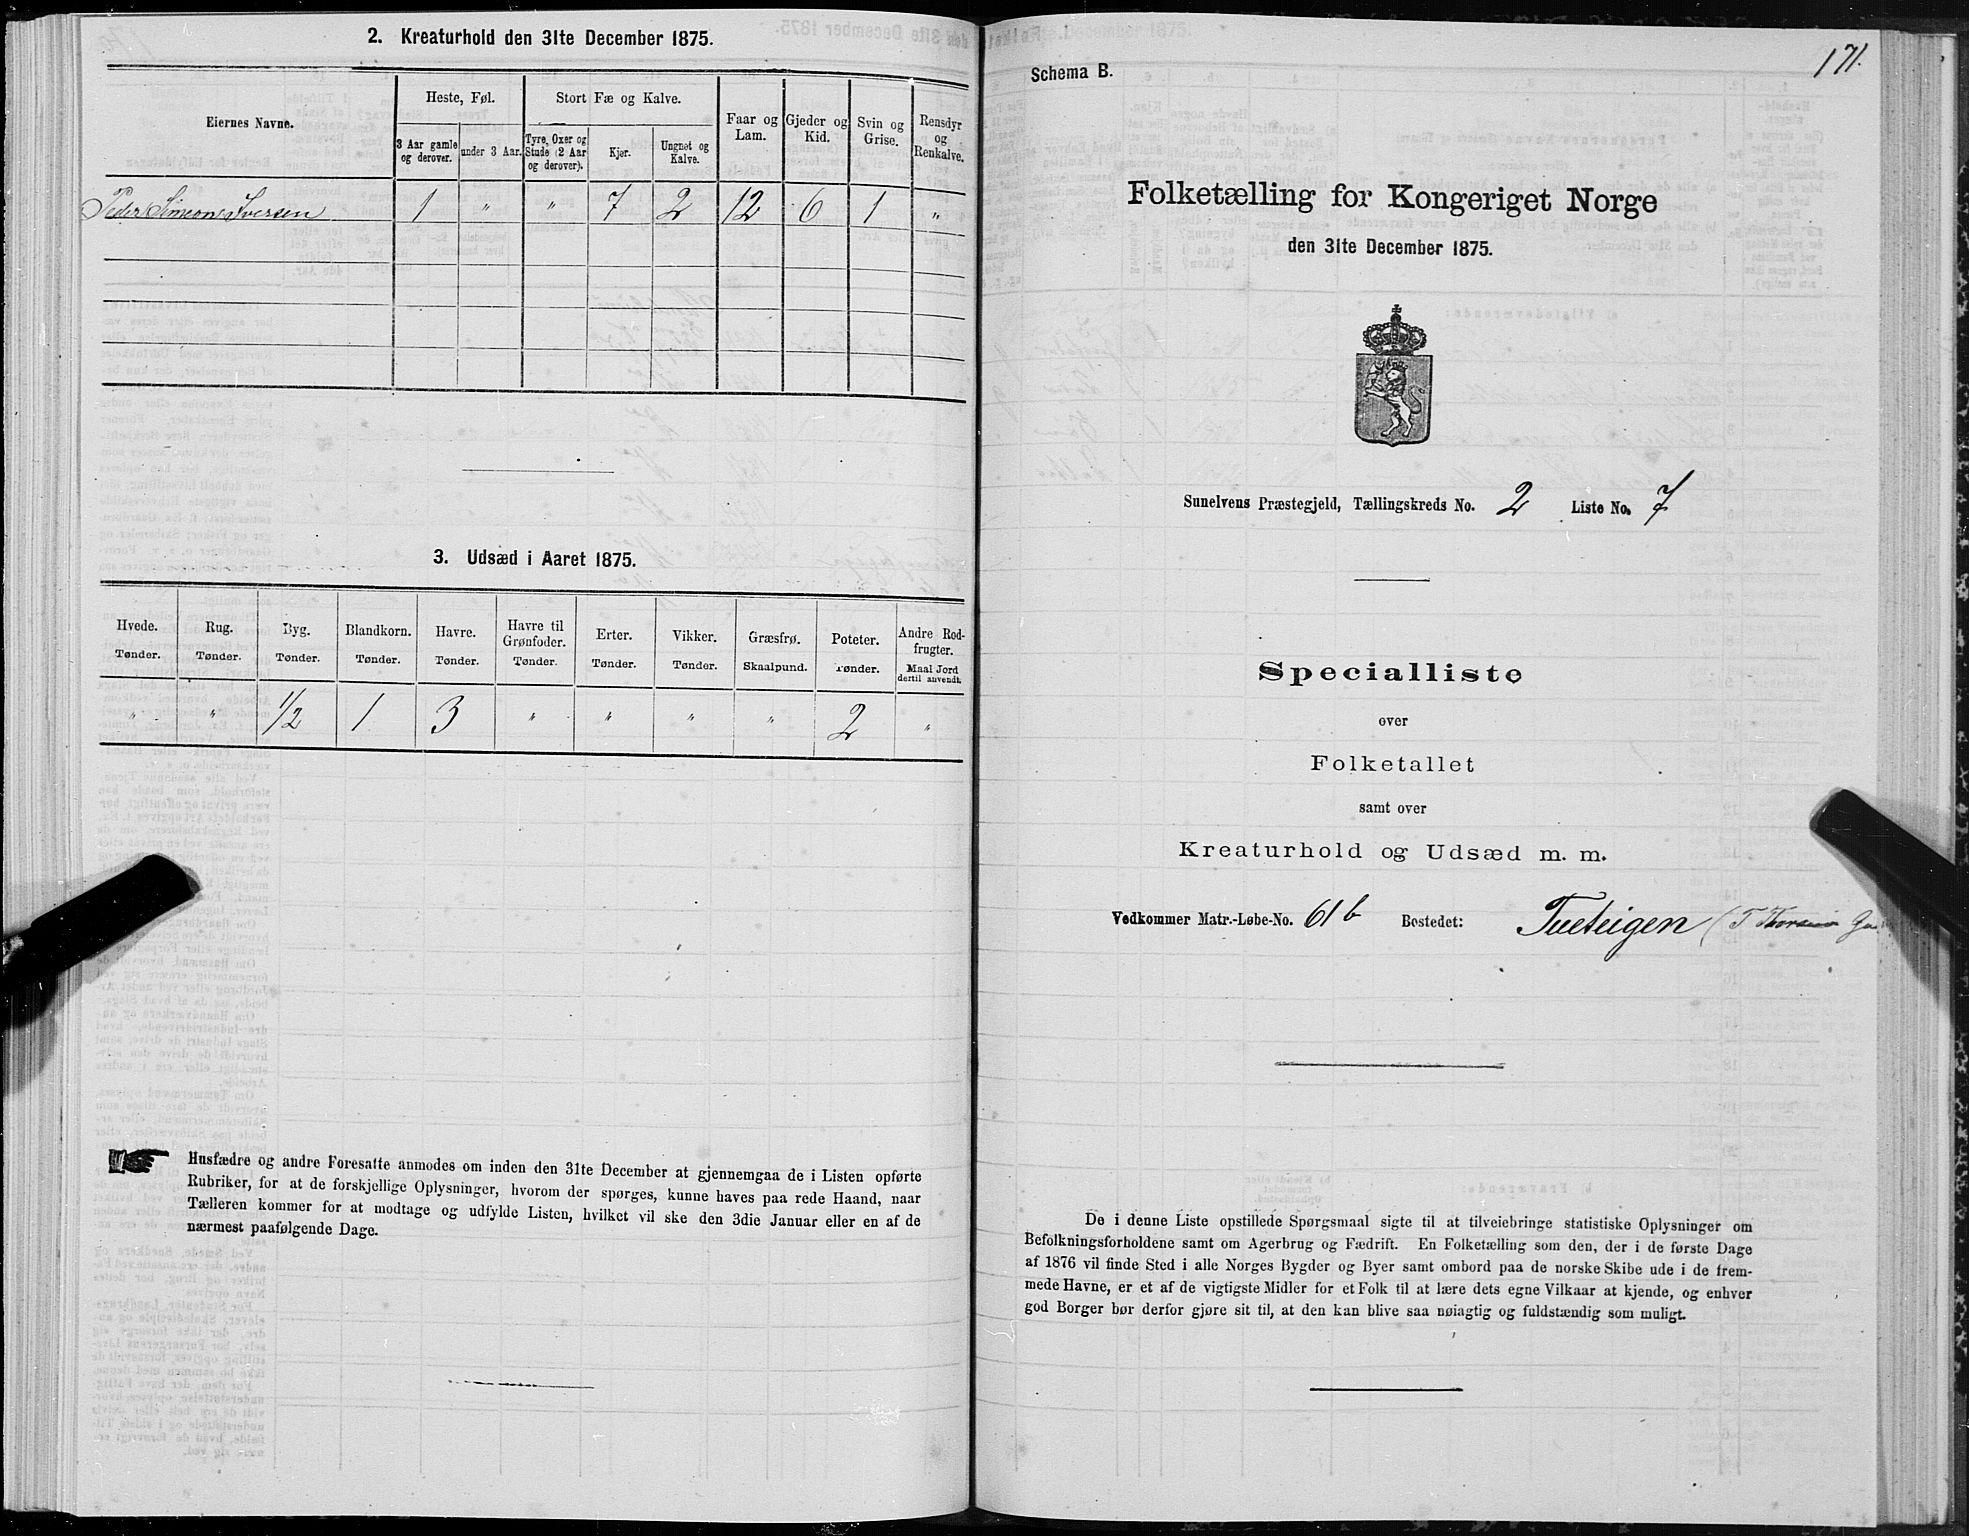 2. Kreaturhold den 31te December 1875.
Eiernes Navne.
Heste, Føl.
Stort Fæ og Kalve.
Faar og Lam.
Gjeder og Kid.
Svin og Grise.
Rensdyr og Renkalve.
3 Aar gamle og derover.
under 3 Aar.
Tyre, Oxer og Stude (2 Aar og derover).
Kjør.
Ungnøt og Kalve.
Peder Simeons Iversen 1 " " 7 2 12 6 1 "
3. Udsæd i Aaret 1875.
Hvede. Rug. Byg. Blandkorn. Havre. Havre til Grønfoder. Erter. Vikker. Græsfrø. Poteter. Andre Rodfrugter.
Tønder. Tønder. Tønder. Tønder. Tønder. Tønder. Tønder. Tønder. Skaalpund. Tønder. Maal Jord dertil anvendt.
" " 1/2 1 3 " " " " 2 "
Husfædre og andre Foresatte anmodes om inden den 31te December at gjennemgaa de i Listen opførte
Rubriker, for at de forskjellige Oplysninger, hvorom der spørges, kunne haves paa rede Haand, naar
Tælleren kommer for at modtage og udfylde Listen, hvilket vil ske den 3die Januar eller en af de
nærmest paafølgende Dage.
171.
Schema B.
Folketælling for Kongeriget Norge
den 31te December 1875.
Sunelvens Præstegjeld, Tællingskreds No. 2 Liste No. 7
Specialliste
over
Folketallet
samt over
Kreaturhold og Udsæd m. m.
Vedkommer Matr.-Løbe-No. 61b Bostedet: Tueteigen
De i denne Liste opstillede Spørgsmaal sigte til at tilveiebringe statistiske Oplysninger om
Befolkningsforholdene samt om Agerbrug og Fædrift. En Folketælling som den, der i de første Dage
af 1876 vil finde Sted i alle Norges Bygder og Byer samt ombord paa de norske Skibe ude i de frem-
mede Havne, er et af de vigtigste Midler for et Folk til at lære dets egne Vilkaar at kjende, og enhver
god Borger bør derfor gjøre sit til, at den kan blive saa nøiagtig og fuldstændig som muligt.